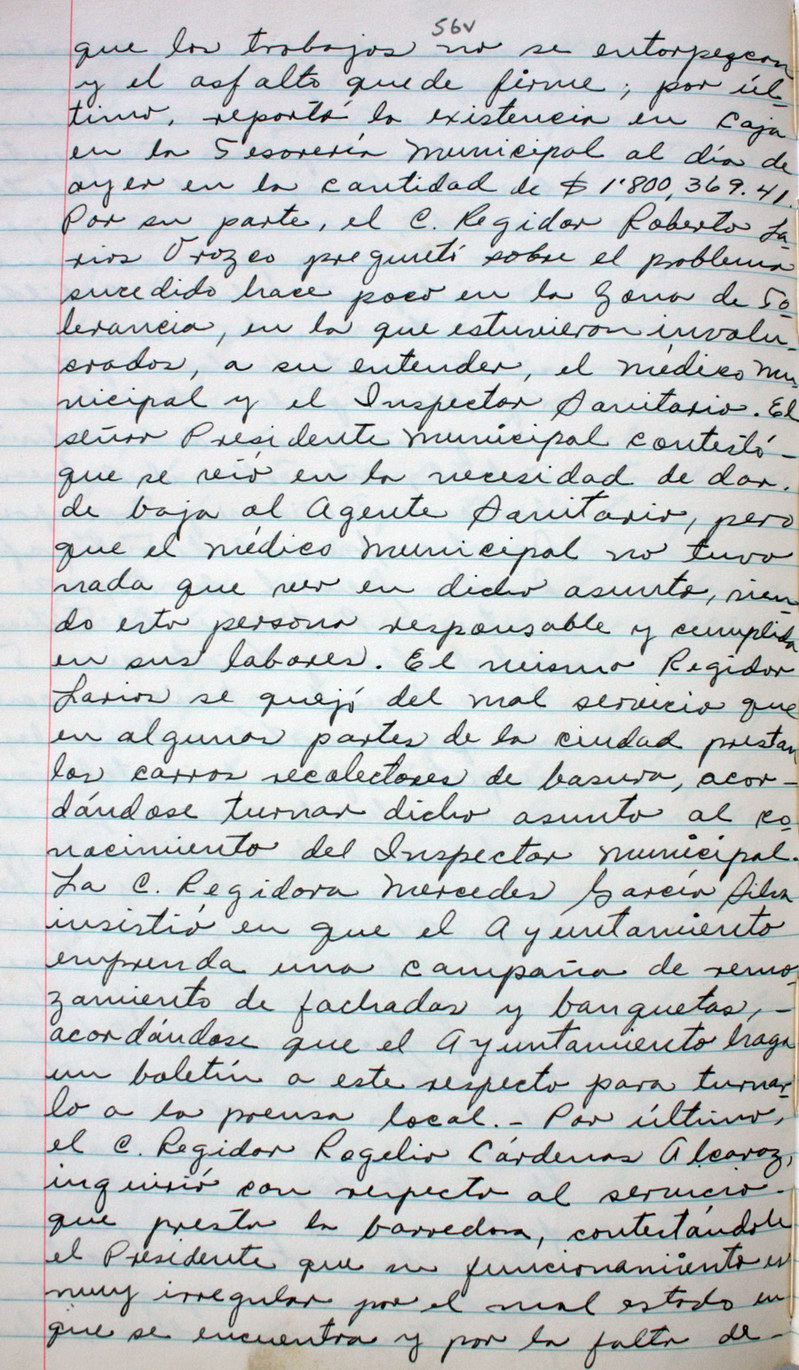 56v
que los trabajos no se entorpezcan
y el asfalto quede firme; por úl-
timo, reportó la existencia en Caja
en la Tesorería Municipal al día de
ayer en la cantidad de $ 1'800,369.41.
Por su parte, el C. Regidor Roberto La-
rios Orozco preguntó sobre el problema
sucedido hace poco en la Zona de To-
lerancia, en la que estuvieron involu-
crados, a su entender, el médico Mu-
nicipal y el Inspector Sanitario. El
señor Presidente Municipal contestó-
que se vió en la necesidad de dar.
de baja al Agente Sanitario, pero
que el médico Municipal no tuvo
nada que ver en dicho asunto, sien-
do esta persona responsable y cumplida
en sus labores. El mismo Regidor
Larios se quejó del mal servicio que
en algunas partes de la ciudad prestan
los carros recolectores de basura, acor-
dándose turnar dicho asunto al co-
nocimiento del Inspector Municipal.
La C. Regidora Mercedes García Silva
insistió en que el Ayuntamiento
emprenda una campaña de remo-
zamiento de fachadas y banquetas, -
acordándose que el Ayuntamiento haga
un boletín a este respecto para turnar-
lo a la prensa local.- Por último,
el C. Regidor Rogelio Cárdenas Alcaraz,
inquirió con respecto al servicio-
que presta la barredora, contestándole
el Presidente que su funcionamiento es
muy irregular por el mal estado en
que se encuentra y por la falta de-